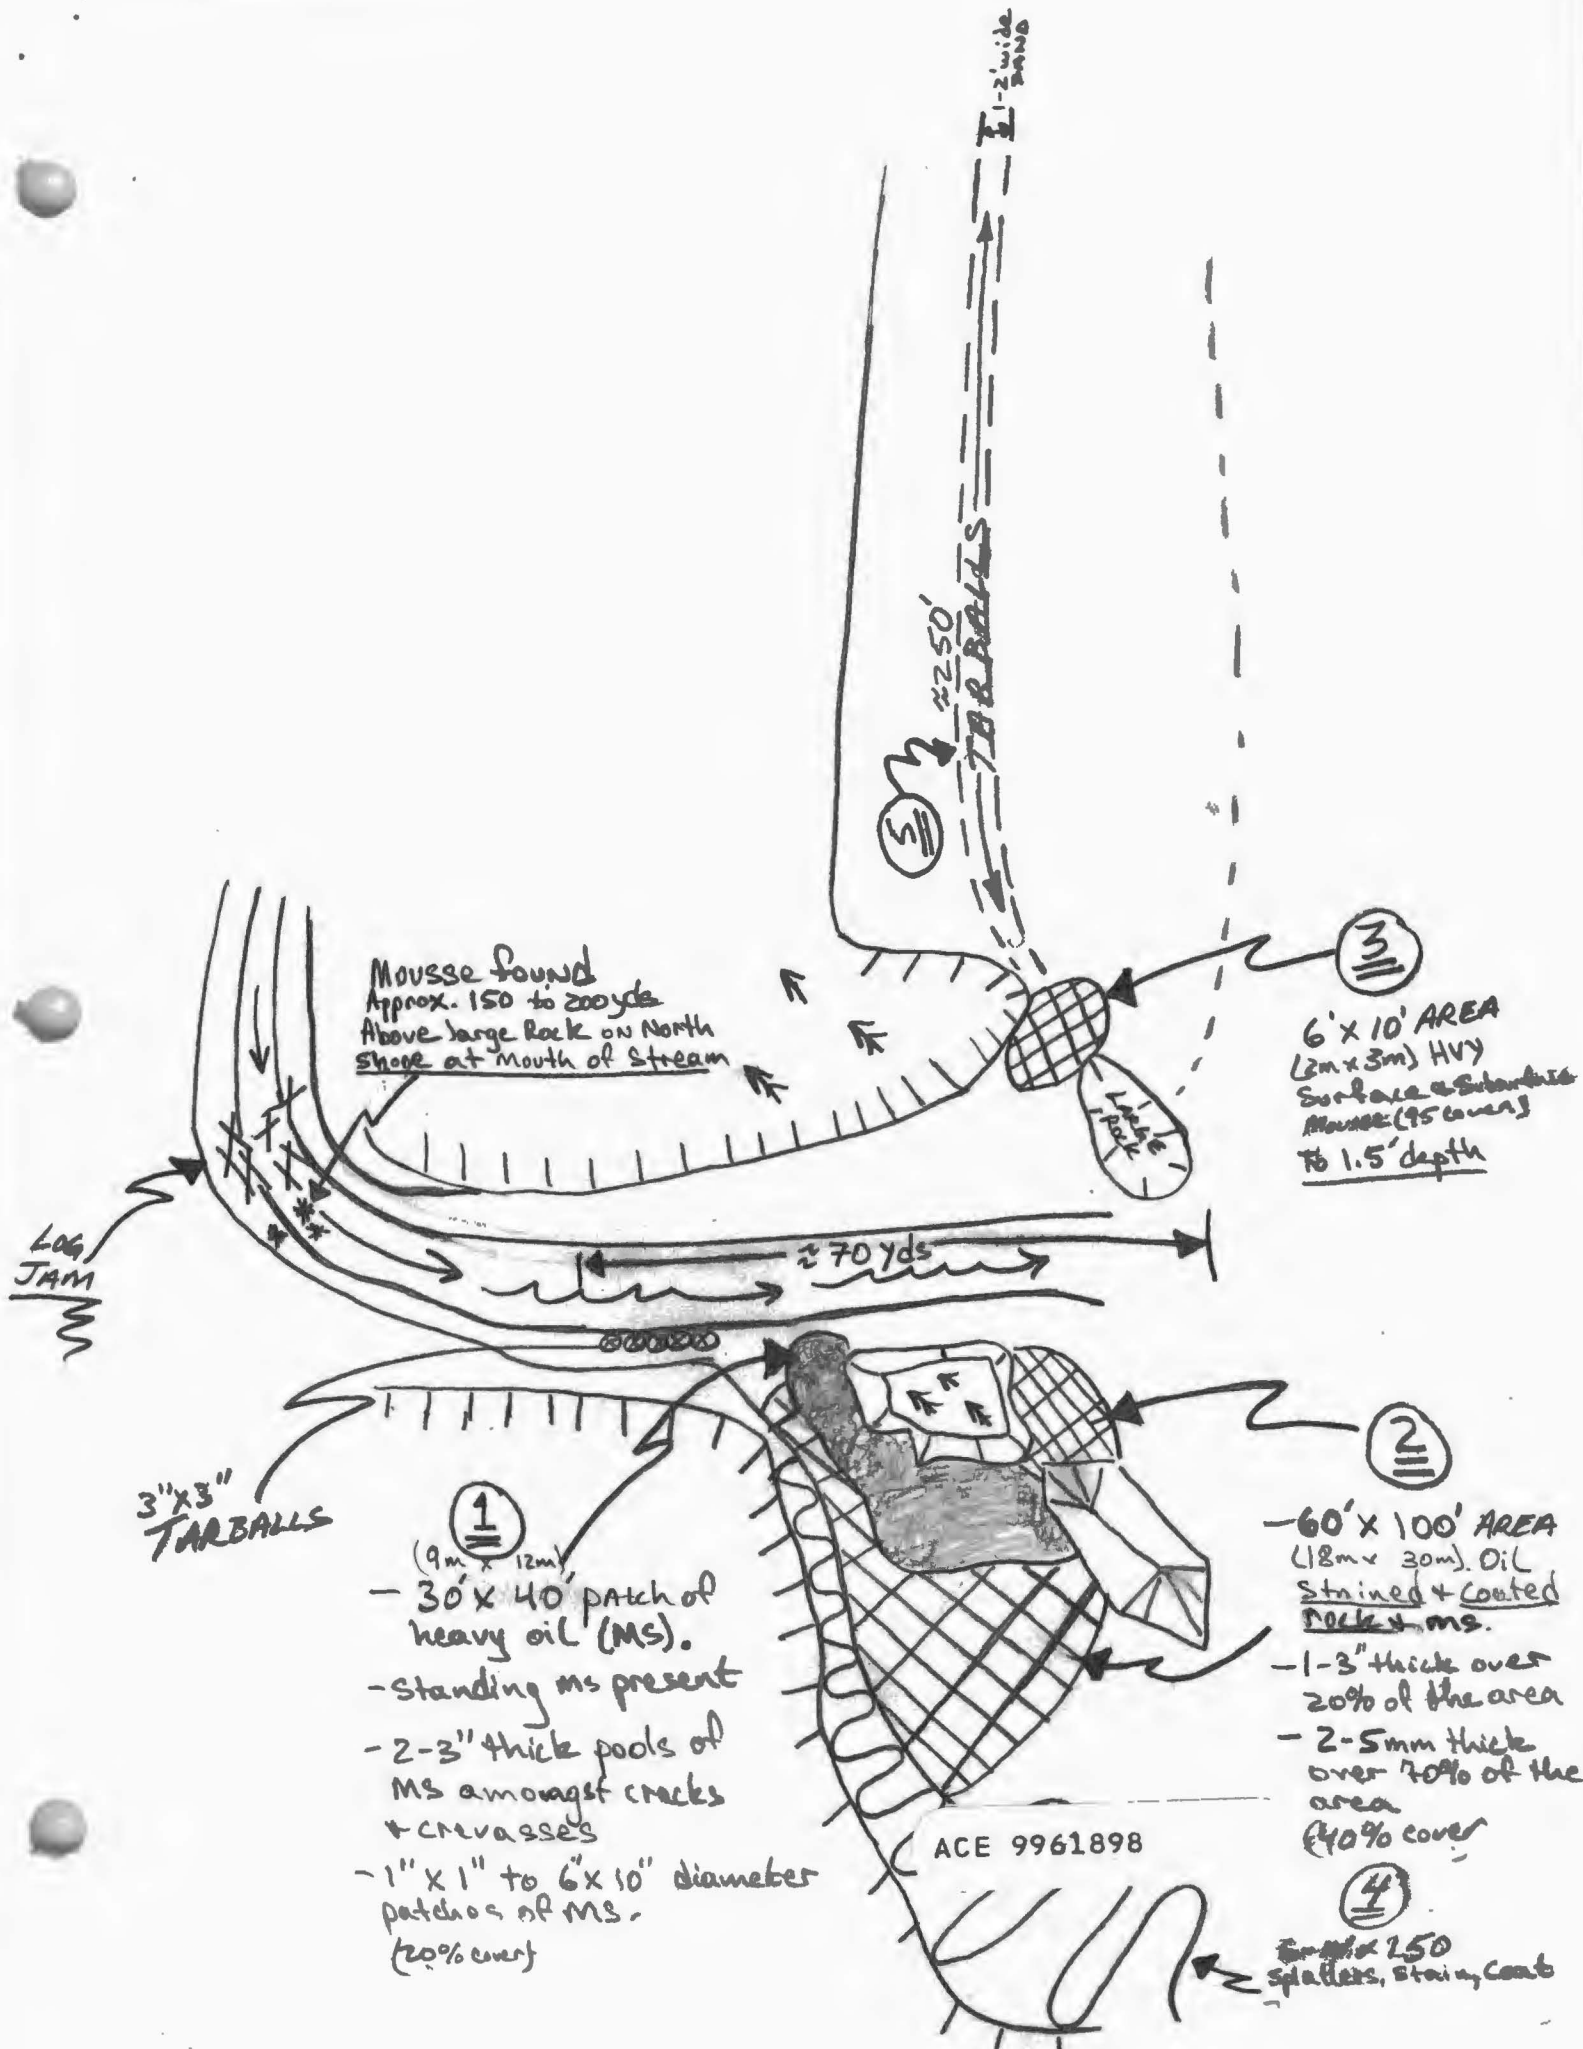 1-2' wide
BAND
≈250'
TAR BALLS
5
Mousse found
Approx. 150 to 200yds
Above large Rock on North
shore at Mouth of Stream
3
6' x 10' AREA
(2m x 3m) HVY
Surface & Subsurface
Mousse (95 cover)
To 1.5' depth
LARGE
ROCK
LOG
JAM
≈ 70 yds
3" x 3"
TARBALLS
1
(9m x 12m)
- 30' x 40' patch of
heavy oil (MS).
- Standing ms present
- 2-3" thick pools of
MS amongst cracks
+ crevasses
- 1" x 1" to 6" x 10" diameter
patches of MS.
(20% cover)
2
- 60' x 100' AREA
(18m x 30m). Oil
Stained + Coated
rock & ms.
- 1-3" thick over
20% of the area
- 2-5mm thick
over 70% of the
area
(40% cover
ACE 9961898
4
x 250
splatters, stain, Coat